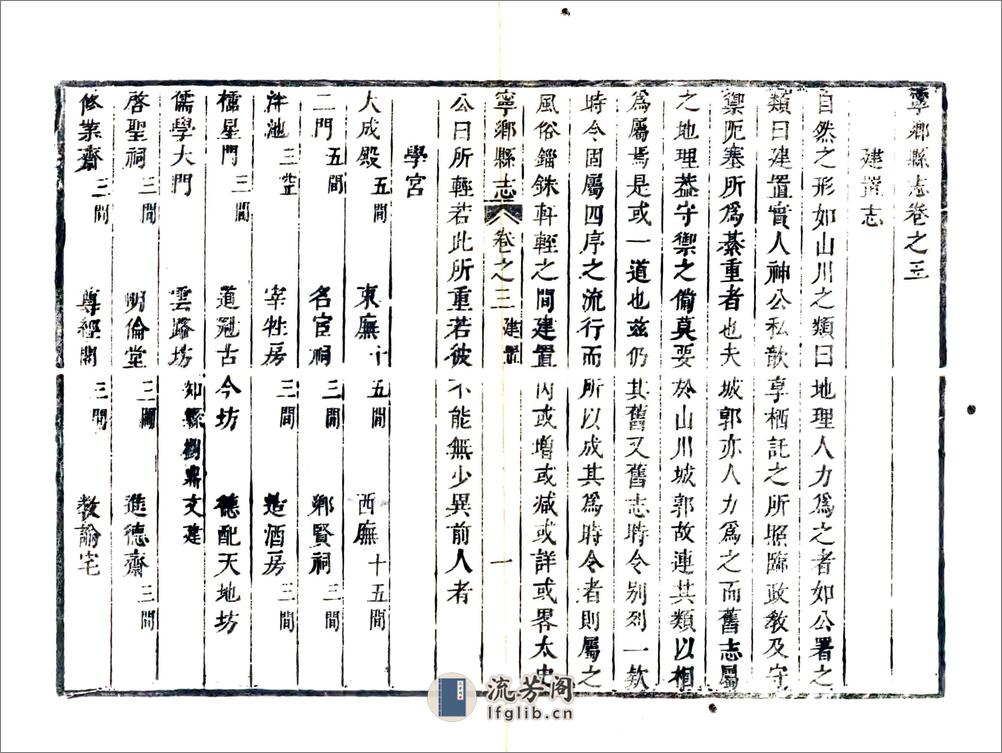 寧鄉縣志卷之三
建置志
自然之形如山川之類曰地理人力爲之者如公署之
類曰建置實人神公私歆享栖託之所照臨政敎及守
禦阨塞所爲綦重者也夫城郭亦人力爲之而舊志屬
之地理葢守禦之備莫要於山川城郭故連其類以相
爲屬焉是或一道也兹仍其舊又舊志時令別列一欵
時令固屬四序之流行而所以成其爲時令者則屬之
風俗錙銖軒輊之間建置內或增或减或詳或畧太史
寧鄉縣志 卷之三 建置 一
公曰所輕若此所重若彼不能無少異前人者
學宮
大成殿五間 東廡十五間 西廡十五間
二門五間 名宦祠三間 鄉賢祠三間
泮池三空 宰牲房三間 造酒房三間
櫺星門三間 道冠古今坊 德配天地坊
儒學大門 雲路坊知縣劉鼐文建
啓聖祠三間 明倫堂三間 進德齋三間
修業齋三間 尊經閣三間 敎諭宅
流芳阁
lfglib.cn